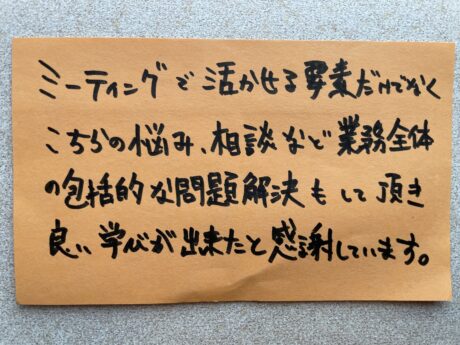 ミーティングで活かせる要素だけでなく
こちらの悩み、相談など業務全体
の包括的な問題解決もして頂き
良い学びが出来たと感謝しています。